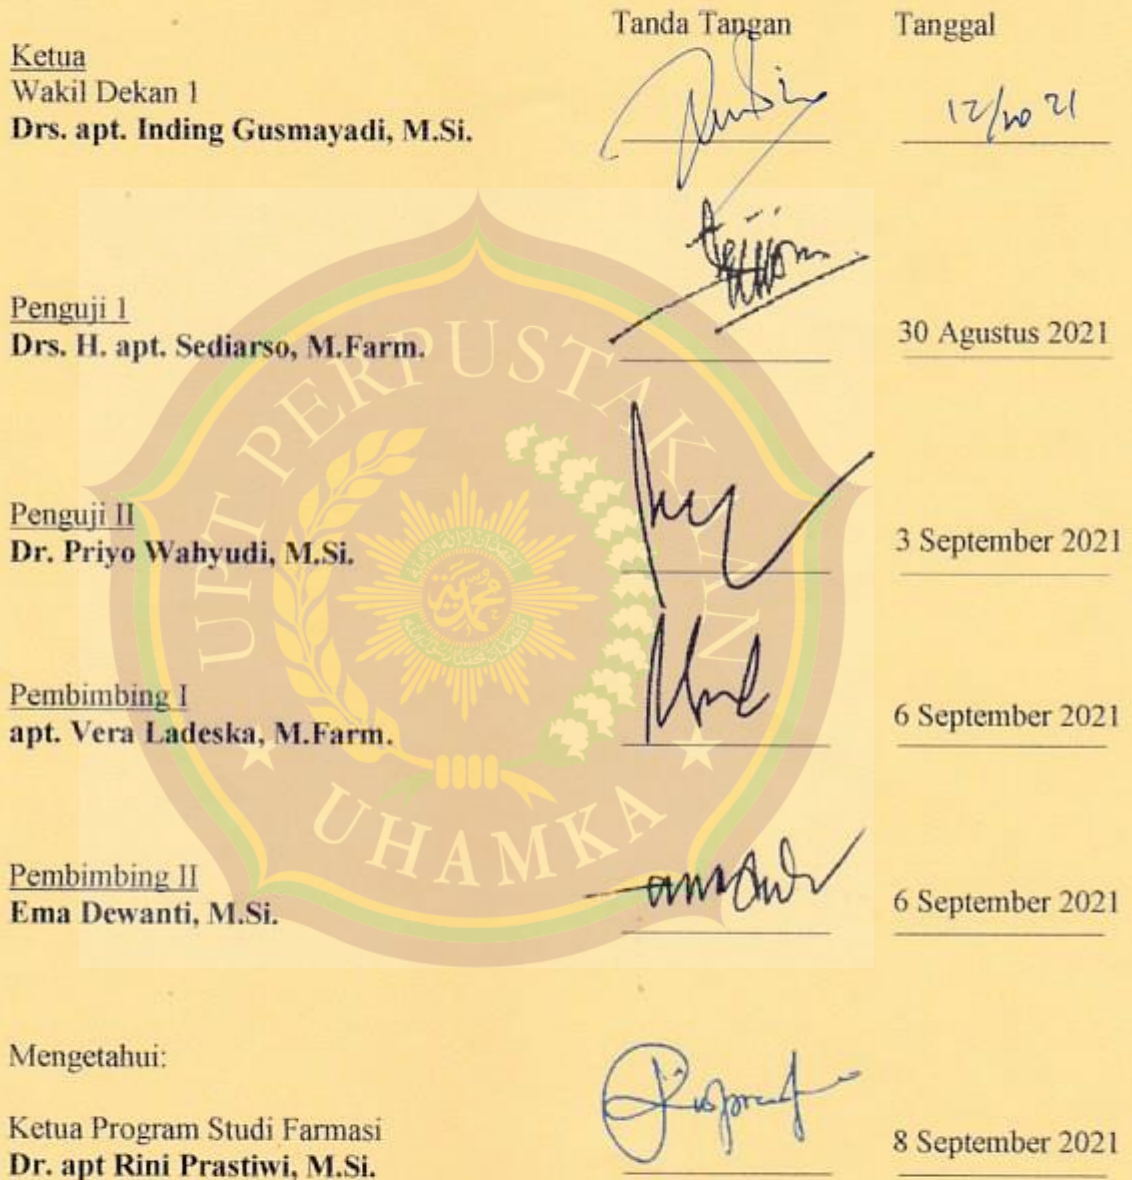 Tanda Tangan Tanggal
Ketua
Wakil Dekan 1
Drs. apt. Inding Gusmayadi, M.Si. 12/10 21
Penguji 1
Drs. H. apt. Sediarso, M.Farm. 30 Agustus 2021
Penguji II
Dr. Priyo Wahyudi, M.Si. 3 September 2021
Pembimbing I
apt. Vera Ladeska, M.Farm. 6 September 2021
Pembimbing II
Ema Dewanti, M.Si. 6 September 2021
Mengetahui:
Ketua Program Studi Farmasi
Dr. apt Rini Prastiwi, M.Si. 8 September 2021
UPT PERPUSTAKAAN
UHAMKA